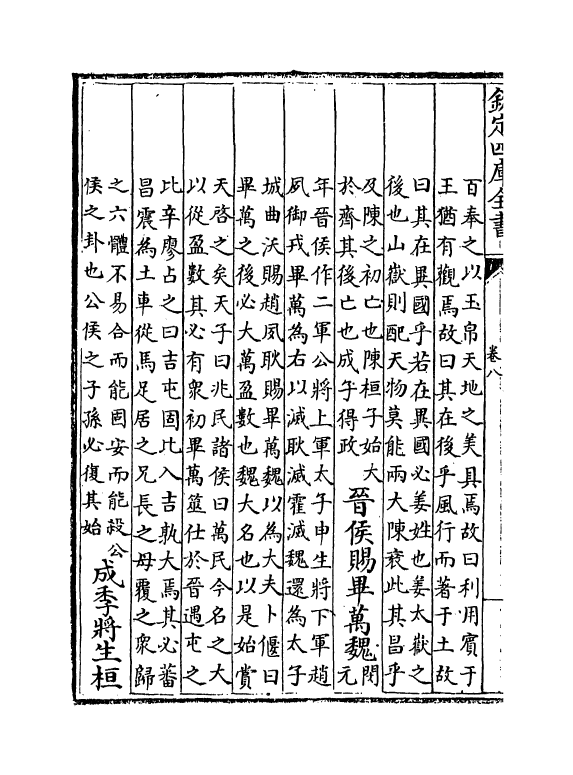 欽定四庫全書
卷八
百奉之以玉帛天地之美具焉故曰利用賓于
王猶有觀焉故曰其在後乎風行而著于土故
曰其在異國乎若在異國必姜姓也姜太嶽之
後也山嶽則配天物莫能兩大陳衰此其昌乎
及陳之初亡也陳桓子始大
於齊其後亡也成子得政
晉侯賜畢萬魏
閔
元
年晉侯作二軍公將上軍太子申生將下軍趙
夙御戎畢萬為右以滅耿滅霍滅魏還為太子
城曲沃賜趙夙耿賜畢萬魏以為大夫卜偃曰
畢萬之後必大萬盈數也魏大名也以是始賞
天啓之矣天子曰兆民諸侯曰萬民今名之大
以從盈數其必有衆初畢萬筮仕於晉遇屯之
比辛廖占之曰吉屯固比入吉孰大焉其必蕃
昌震為土車從馬足居之兄長之母覆之衆歸
之六體不易合而能固安而能殺公
侯之卦也公侯之子孫必復其始
成季將生桓